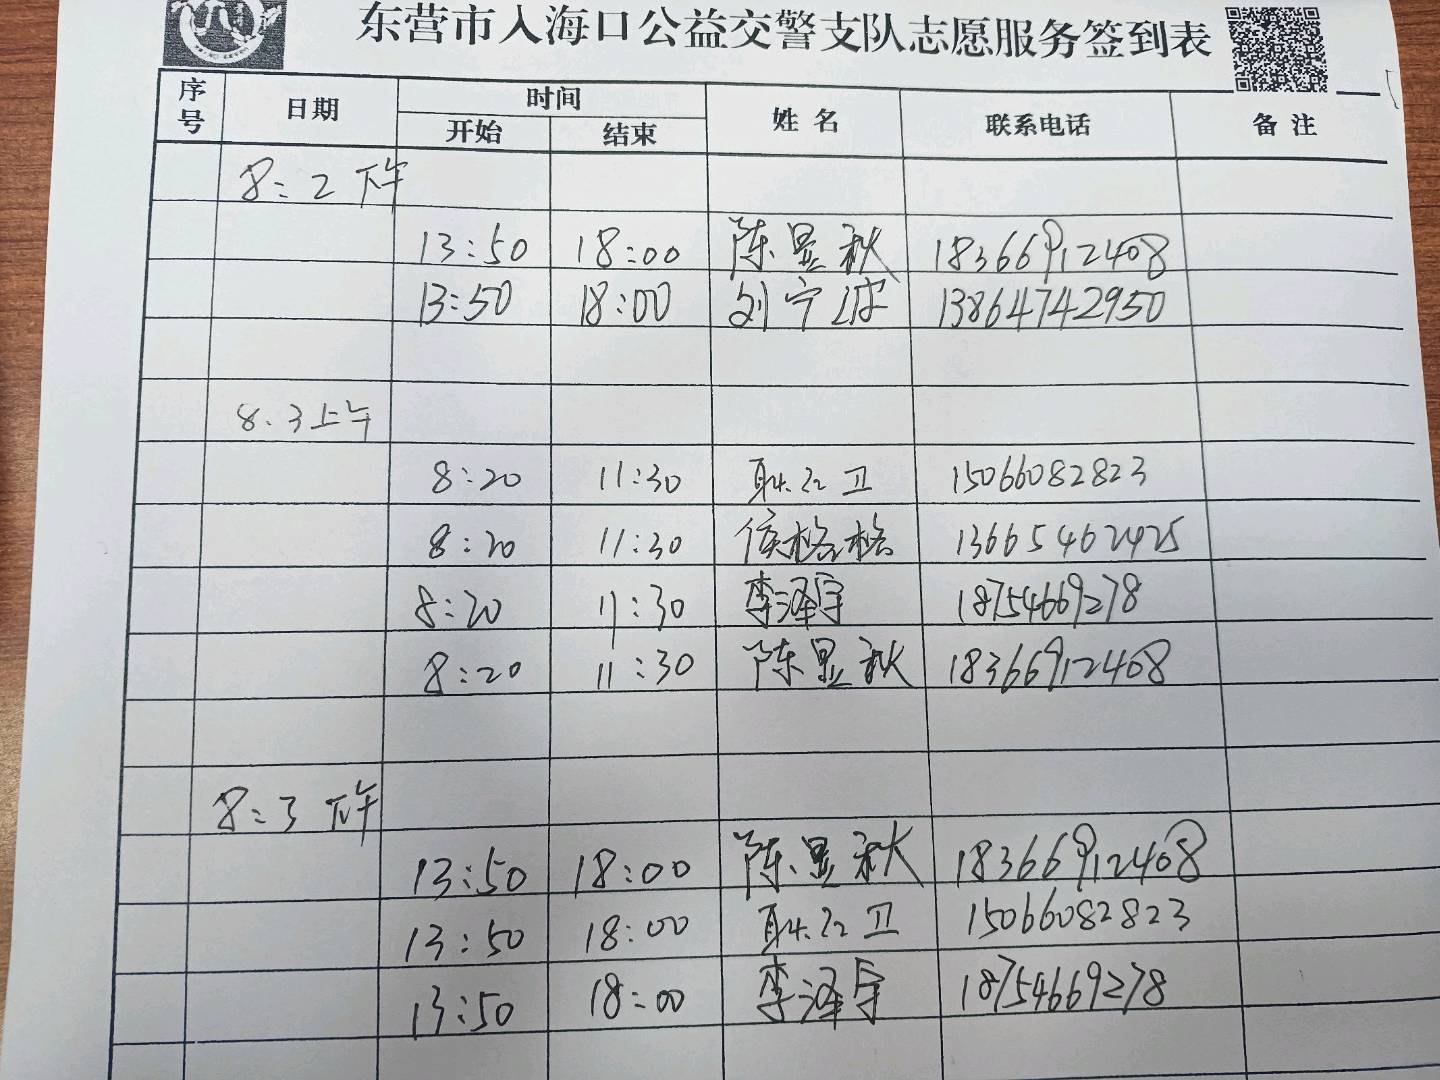 东营市入海口公益交警支队志愿服务签到表
序号 日期 时间 姓名 联系电话 备注
开始 结束
8:2 下午
13:50 18:00 陈显秋 18366912408
13:50 18:00 刘宁波 13864742950
8.3上午
8:20 11:30 卫 15066082823
8:20 11:30 侯格格 13665462425
8:20 11:30 李泽宇 18754669278
8:20 11:30 陈显秋 18366912408
8:3 下午
13:50 18:00 陈显秋 18366912408
13:50 18:00 卫 15066082823
13:50 18:00 李泽宇 18754669278